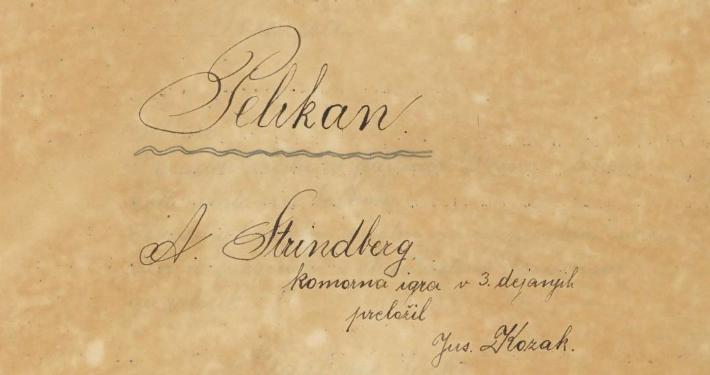 Pelikan
A. Strindberg
komorna igra v 3. dejanjih
preložil
Jus. Kozak.